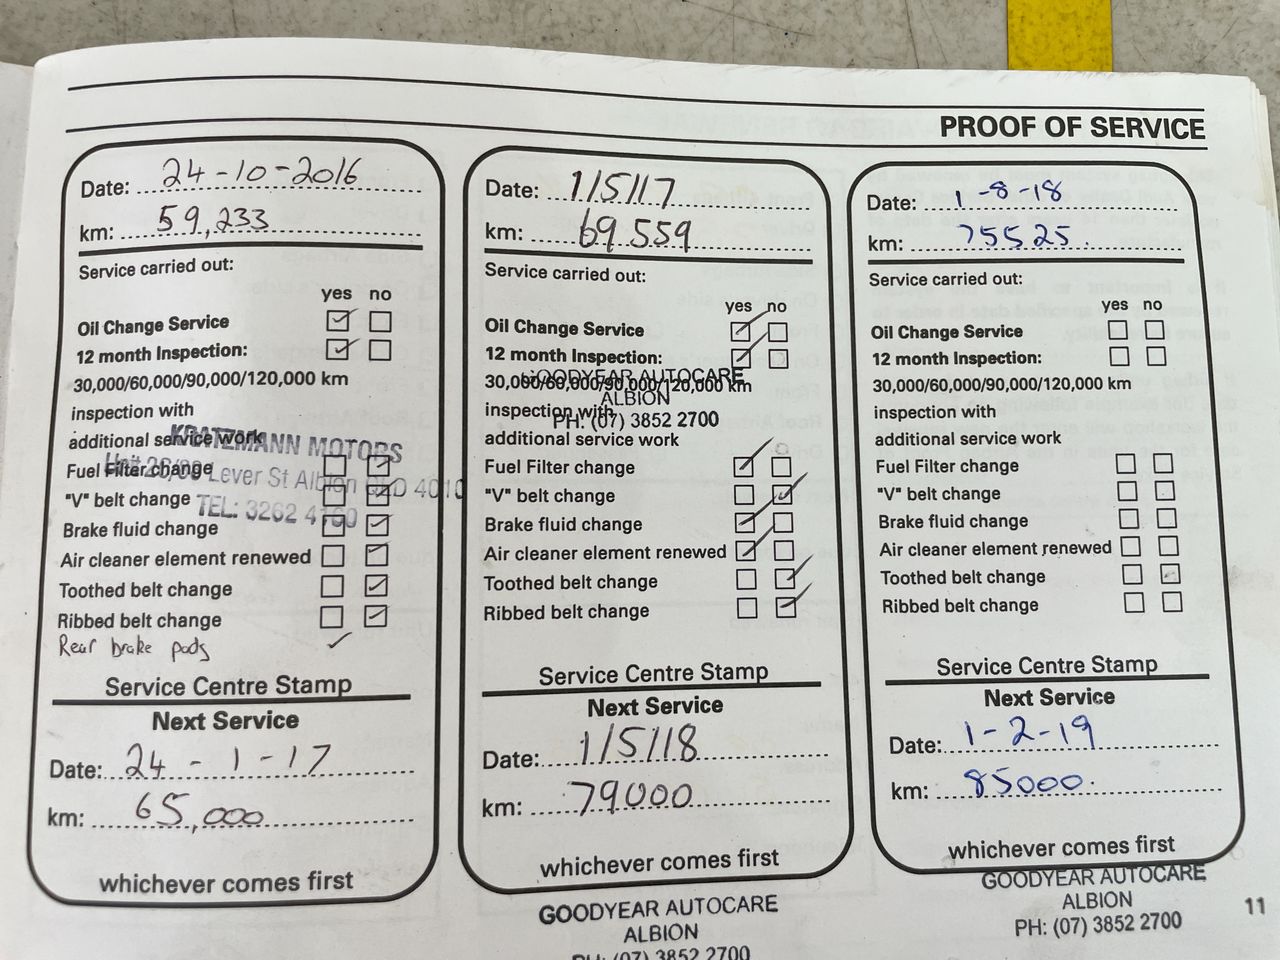 PROOF OF SERVICE
Date: 24-10-2016
km: 59,233
Service carried out:
yes no
Oil Change Service
12 month Inspection:
30,000/60,000/90,000/120,000 km
inspection with
additional service work
KRATZMANN MOTORS
Lever St Albion QLD 4010
TEL: 3262 4160
Fuel Filter change
"V" belt change
Brake fluid change
Air cleaner element renewed
Toothed belt change
Ribbed belt change
Rear brake pads
Service Centre Stamp
Next Service
Date: 24-1-17
km: 65,000
whichever comes first
Date: 1/5/17
km: 69559
Service carried out:
yes no
Oil Change Service
12 month Inspection:
GOODYEAR AUTOCARE
30,000/60,000/90,000/120,000 km
ALBION
inspection with
PH: (07) 3852 2700
additional service work
Fuel Filter change
"V" belt change
Brake fluid change
Air cleaner element renewed
Toothed belt change
Ribbed belt change
Service Centre Stamp
Next Service
Date: 1/5/18
km: 79000
whichever comes first
GOODYEAR AUTOCARE
ALBION
PH: (07) 3852 2700
Date: 1-8-18
km: 75525.
Service carried out:
yes no
Oil Change Service
12 month Inspection:
30,000/60,000/90,000/120,000 km
inspection with
additional service work
Fuel Filter change
"V" belt change
Brake fluid change
Air cleaner element renewed
Toothed belt change
Ribbed belt change
Service Centre Stamp
Next Service
Date: 1-2-19
km: 85000.
whichever comes first
GOODYEAR AUTOCARE
ALBION
PH: (07) 3852 2700
11